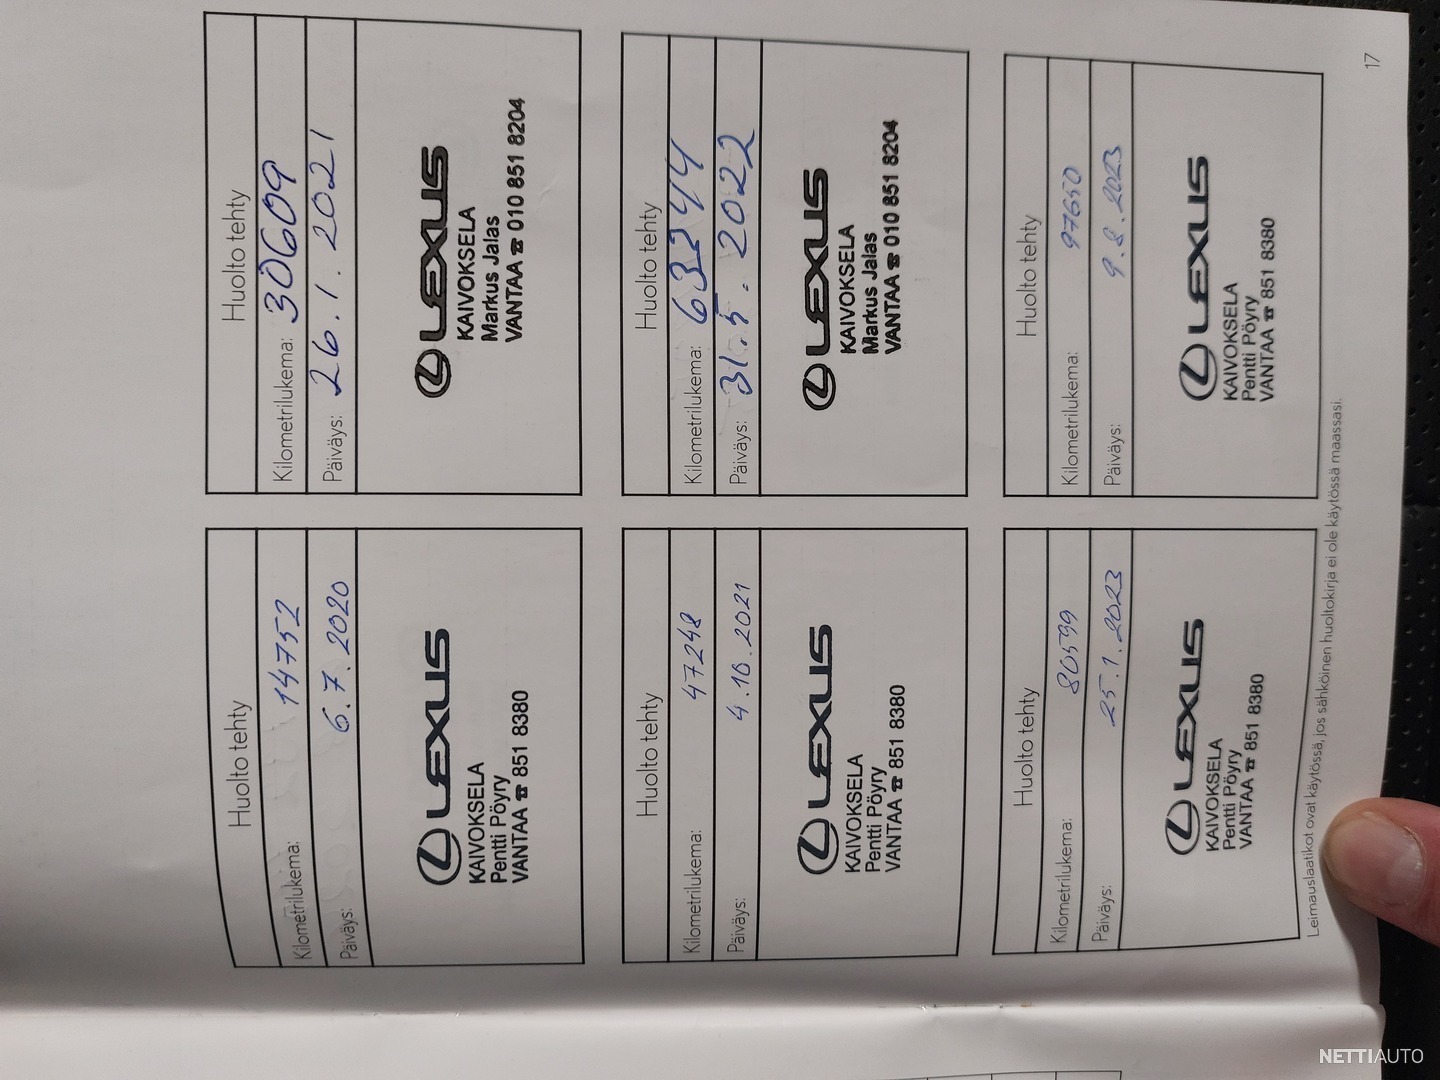 Huolto tehty
Kilometrilukema: 14752
Päiväys: 6.7.2020
LEXUS
KAIVOKSELA
Pentti Pöyry
VANTAA ☎ 851 8380
Huolto tehty
Kilometrilukema: 30609
Päiväys: 26.1.2021
LEXUS
KAIVOKSELA
Markus Jalas
VANTAA ☎ 010 851 8204
Huolto tehty
Kilometrilukema: 47248
Päiväys: 4.10.2021
LEXUS
KAIVOKSELA
Pentti Pöyry
VANTAA ☎ 851 8380
Huolto tehty
Kilometrilukema: 63244
Päiväys: 31.5.2022
LEXUS
KAIVOKSELA
Markus Jalas
VANTAA ☎ 010 851 8204
Huolto tehty
Kilometrilukema: 80599
Päiväys: 25.1.2023
LEXUS
KAIVOKSELA
Pentti Pöyry
VANTAA ☎ 851 8380
Huolto tehty
Kilometrilukema: 97650
Päiväys: 9.8.2023
LEXUS
KAIVOKSELA
Pentti Pöyry
VANTAA ☎ 851 8380
Leimauslaatikot ovat käytössä, jos sähköinen huoltokirja ei ole käytössä maassasi.
17
NETTIAUTO